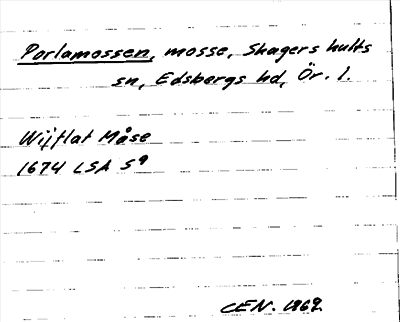 Porlamossen, mosse, Skagershults
sn, Edsbergs hd, Ör. l.
Wijflat Måse
1674 LSA S9
CEN. 1969.